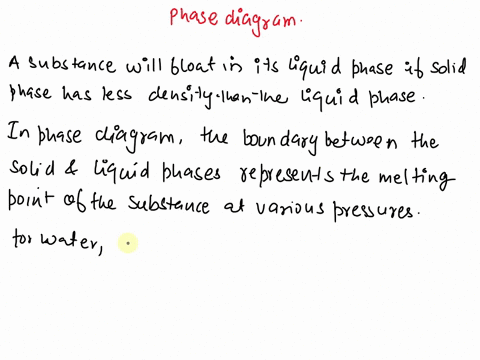 Phase diagram.
A substance will float in its liquid phase if solid
phase has less density than the liquid phase.
In phase diagram, the boundary between the
solid & liquid phases represents the melting
point of the substance at various pressures.
for water,